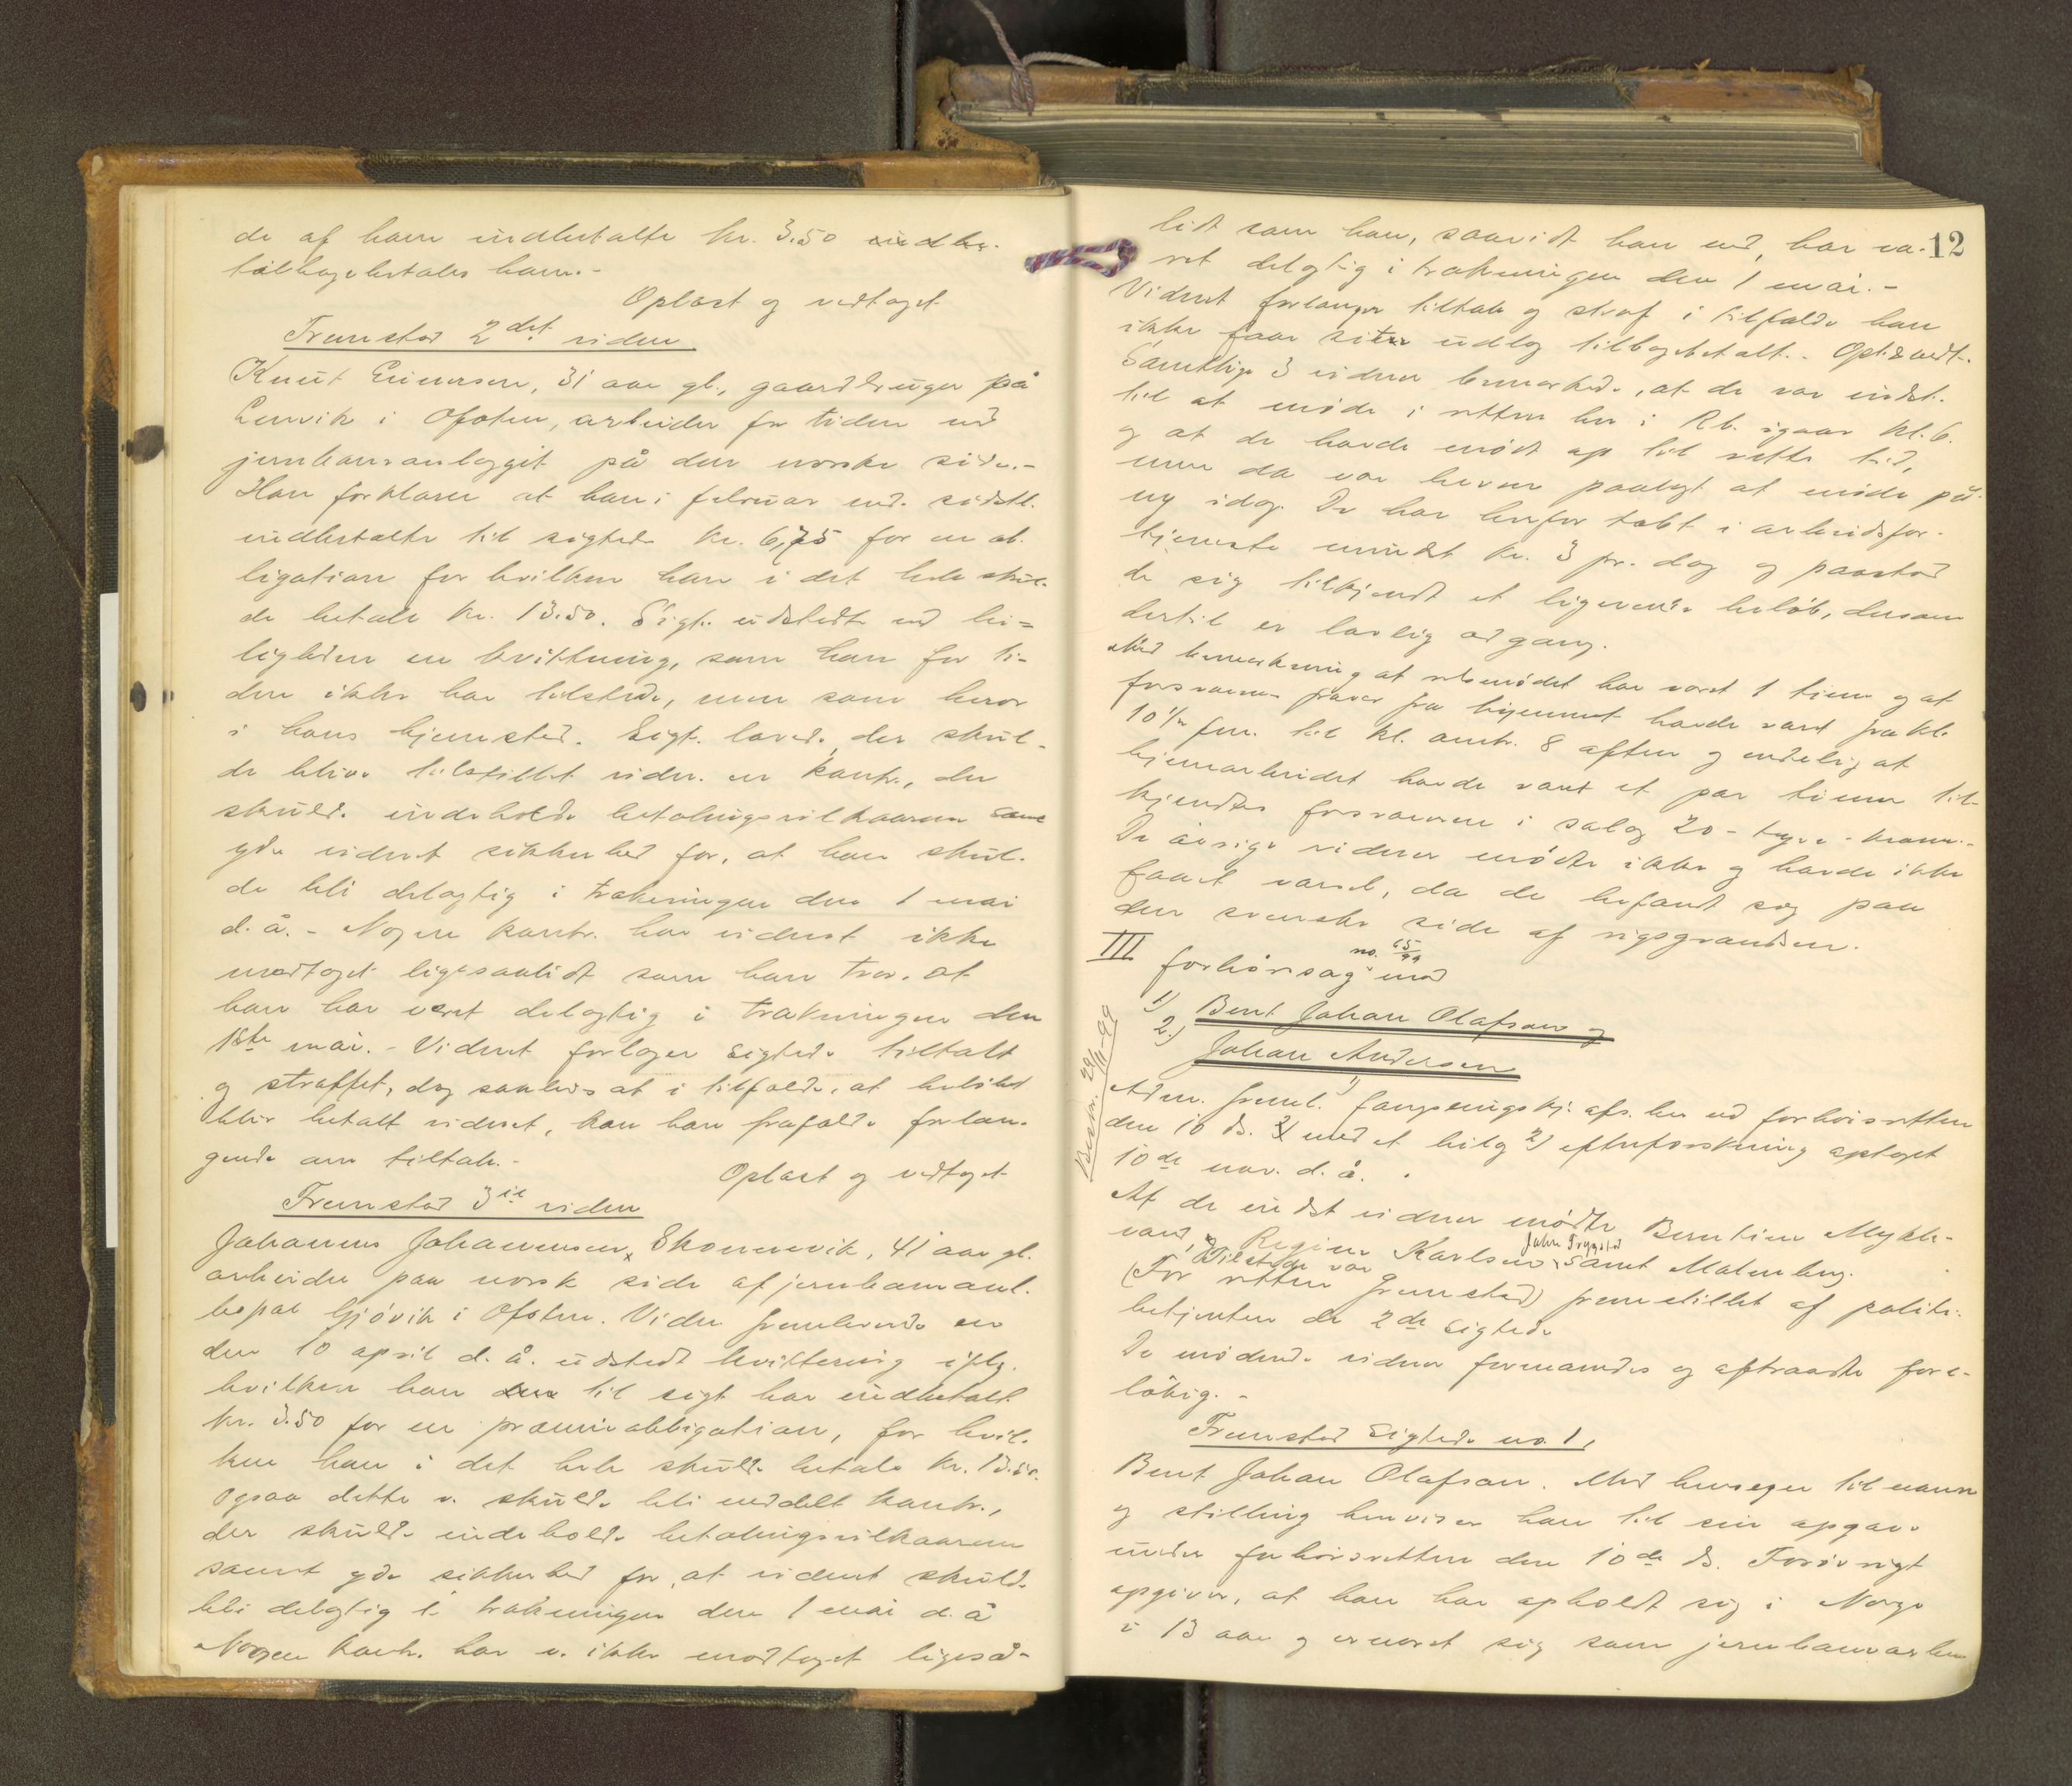 de af ham indbetalte kr. 3.50 indbe-
tilbagebetales ham.-
Oplæst og vedtaget
Fremstod 2det vidne
Knut Einersen, 31 aar gl., gaardbruger på
Lenvik i Ofoten, arbeider for tiden ved
jernbaneanlægget på den norske side.-
Han forklarer at han i februar md. sidstl.
indbetalte til sigtede kr. 6,75 for en ob-
ligation for hvilken han i det hele skul-
de betale kr. 13.50. Sigt. udstedte ved lei=
ligheden en kvittering, som han for ti-
den ikke har tilstede, men som beror
i hans hjemsted. Sigt. lovede, der skul-
de blive tilstillet vidn. en kontr., der
skulde indeholde betalingsvilkaarene samt
yde vidnet sikkerhed for, at han skul-
de bli delagtig i trækningen den 1 mai
d. å. - Nogen kontr. har vidnet ikke
modtaget ligesaalidt som han tror, at
han har været delagtig i trækningen den
1ste mai. - Vidnet forlanger sigtede tiltalt
og straffet, dog saaledes at i tilfælde, at beløbet
blir betalt vidnet, kan han frafalde forlan-
gende om tiltale.-
Oplæst og vedtaget
Fremstod 3die vidne
Johannes Johannessen, Skonnevik, 41 aar gl.
arbeider paa norsk side af jernbaneanl.
bopæl Gjövik i Ofoten. Vidn. fremleverede en
den 10 april d. å. udstedt kvittering ifölg.
hvilken han den til sigt. har indbetalt
kr. 3.50 for en præmieobligation, for hvil-
ken han i det hele skulde betale kr. 13.50.
Ogsaa dette v. skulde bli meddelt kontr.,
der skulde indeholde betalingsvilkaarene
samt yde sikkerhed for, at vidnet skulde
bli delagtig i trækningen den 1 mai d. å
Nogen kontr. har v. ikke modtaget ligeså-
12
lidt som han, saavidt han ved, har væ-
ret delagtig i trækningen den 1 mai.-
Vidnet forlanger tiltale og straf i tilfælde han
ikke faar sit udlæg tilbagebetalt.- Opl. & vedt.
Samtlige 3 vidner bemærkede, at de var indst.
til at møde i retten her i Rb. igaar kl. 6.
og at de havde mødt op til rette tid,
men da var bleven paalagt at møde på
ny idag. De har derfor tabt i arbeidsfor-
tjeneste mindst kr. 3 pr. dag og paastod
de sig tilkjendt et ligesaadant beløb, dersom
dertil er lovlig adgang.
Med bemærkning at retsmødet har varet 1 time og at
forsvarerens fravær fra hjemmet havde varet fra kl.
10½ fm. til kl. omtr. 8 aften og endelig at
hjemarbeidet havde varet et par timer til-
kjendtes forsvareren i salær 20 - tyve - kroner.-
De øvrige vidner mødte ikke og havde ikke
faaet varsel, da de befandt sig paa
den svenske side af rigsgrændsen.
III forhörssag no. 65/99 mod
1) Bent Johan Olafsen og
2.) Johan Andersen
Adm. freml. 1) fængslingskj. afs. her ved forhörsretten
den 10 ds. med et bilag 2) efterforskning optaget
10de nov. d. å.
Af de indst. vidner mødte Berntine Mykle-
vand, Regine Karlsen, John Trygstad samt Malmberg.
Tilstede var
(For retten fremstod) fremstillet af politi-
betjenten de 2de sigtede
De mødende vidner formanedes og aftraadte fore-
löbig.-
Fremstod sigtede no. 1,
Bent Johan Olafsen. Med hensyn til navn
og stilling henviser han til sin opgave
under forhörsretten den 10de ds. Forövrigt
opgiver, at han har opholdt sig i Norge
i 13 aar og ernæret sig som jernbanearbei-